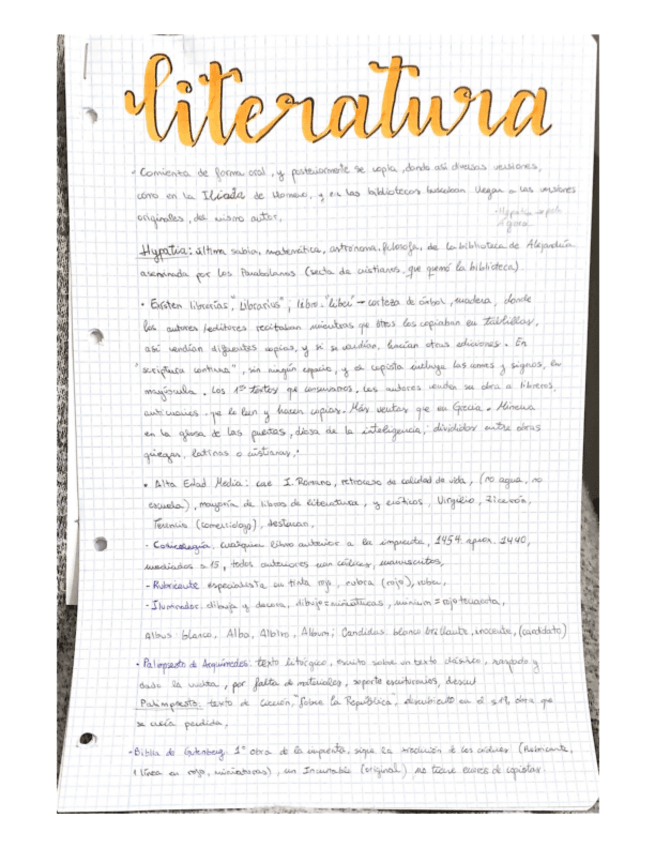 literatura
- Comienza de forma oral, y posteriormente se copia, dando así diversas versiones,
como en la Ilíada de Homero, y en las bibliotecas buscaban llegar a las versiones
originales, del mismo autor.
Hypatia: última sabia, matemática, astrónoma, filósofa, de la biblioteca de Alejandría,
asesinada por los Parabolanos (secta de cristianos, que quemó la biblioteca)
• Existen librerías, "Librarius", libro: "liber" → corteza de árbol, madera, donde
los autores/editores recitaban mientras que otros las copiaban en tablillas,
así vendían diferentes copias, y si se vendían, hacían otras ediciones. En
"scriptura continua", sin ningún espacio, y el copista las comas y signos, en
mayúscula. Los 1ºs textos que conservamos, los autores venden su obra a libreros,
que la leen y hacen copias. Más ventas que en Grecia. Minerva
en la de las puertas, diosa de la inteligencia, divididos entre obras
griegas, latinas o cristianas.
• Alta Edad Media: cae I. Romano, retroceso de calidad de vida, (no agua, no
escuela), mayoría de libros de literatura, y eróticos, Virgilio, Cicerón,
Terencio (comediólogo), destacan.
- Codicología, cualquier libro anterior a la imprenta, 1454 aprox. 1440,
mediados s.15, todos anteriores son códices, manuscritos,
- Rubricante especialista en tinta roja, rubra (rojo),
- Iluminador: dibuja y decora, dibujo = miniaturas, minium = rojo
Albus: blanco, Alba, Albino, Álbum; Candidus: blanco brillante, inocente, (candidato)
• Palimpsesto de Arquímedes: texto litúrgico, escrito sobre un texto clásico, raspado y
dado la vuelta, por falta de materiales, soporte
Palimpsesto: texto de Cicerón, "Sobre la República", descubierto en el s.19, obra que
se creía perdida,
- Biblia de Gutenberg: 1ª obra de la imprenta, sigue la tradición de los códices (Rubricante,
1 línea en rojo, miniaturas), un Incunable (original), no tiene errores de copistas.